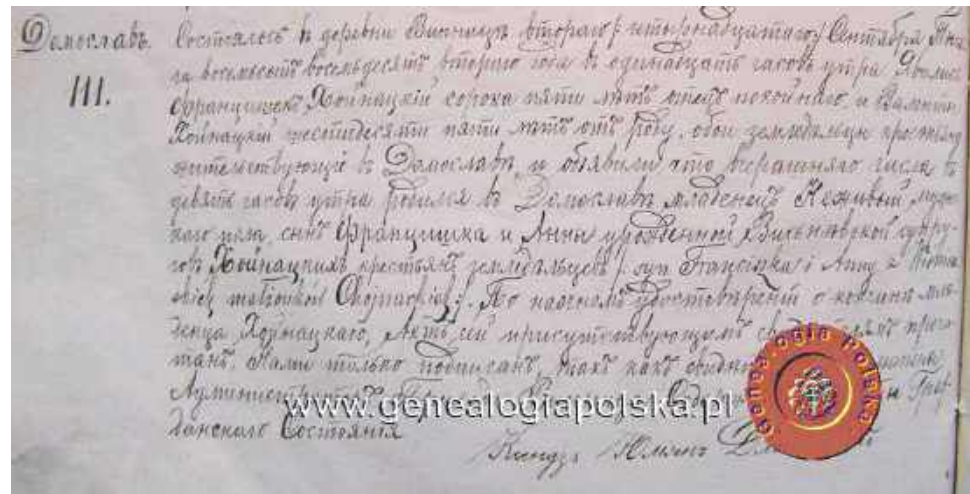 Домославъ.
111.
Состоялось въ деревни Винницѣ второго /четырнадцатаго/ Сентября
восемьсотъ восемьдесятъ второго года въ одинадцать часовъ утра. Явились
Францишекъ Хойнацкій сорока пяти лѣтъ отецъ покойнаго, и Валентій
Хойнацкій шестидесяти пяти лѣтъ отъ роду, обои земледѣльцы
жительствующіе въ Домославѣ, и объявили что вчерашняго числа въ
девять часовъ утра родился въ Домославѣ младенецъ Неживый,
каго пола, сынъ Францишка и Анны урожденной супру-
говъ Хойнацкихъ крестьянъ земледѣльцевъ /: syn Franciszka i Anny z
małżonków Chojnackich :/. По наочномъ удостовѣреніи о кончинѣ мла-
денца Хойнацкаго, Актъ сей присутствующимъ прочи-
танъ, Нами только подписанъ, такъ какъ
Администраторъ Граж-
данскаго Состоянія
Ксендзъ Юліянъ
www.genealogiapolska.pl
Genealogia Polska